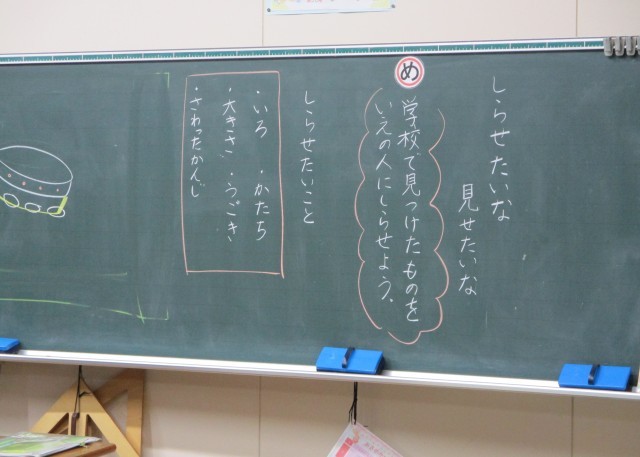 しらせたいな
見せたいな
め
学校で見つけたものを
いえの人にしらせよう。
しらせたいこと
・いろ ・かたち
・大きさ ・うごき
・さわったかんじ